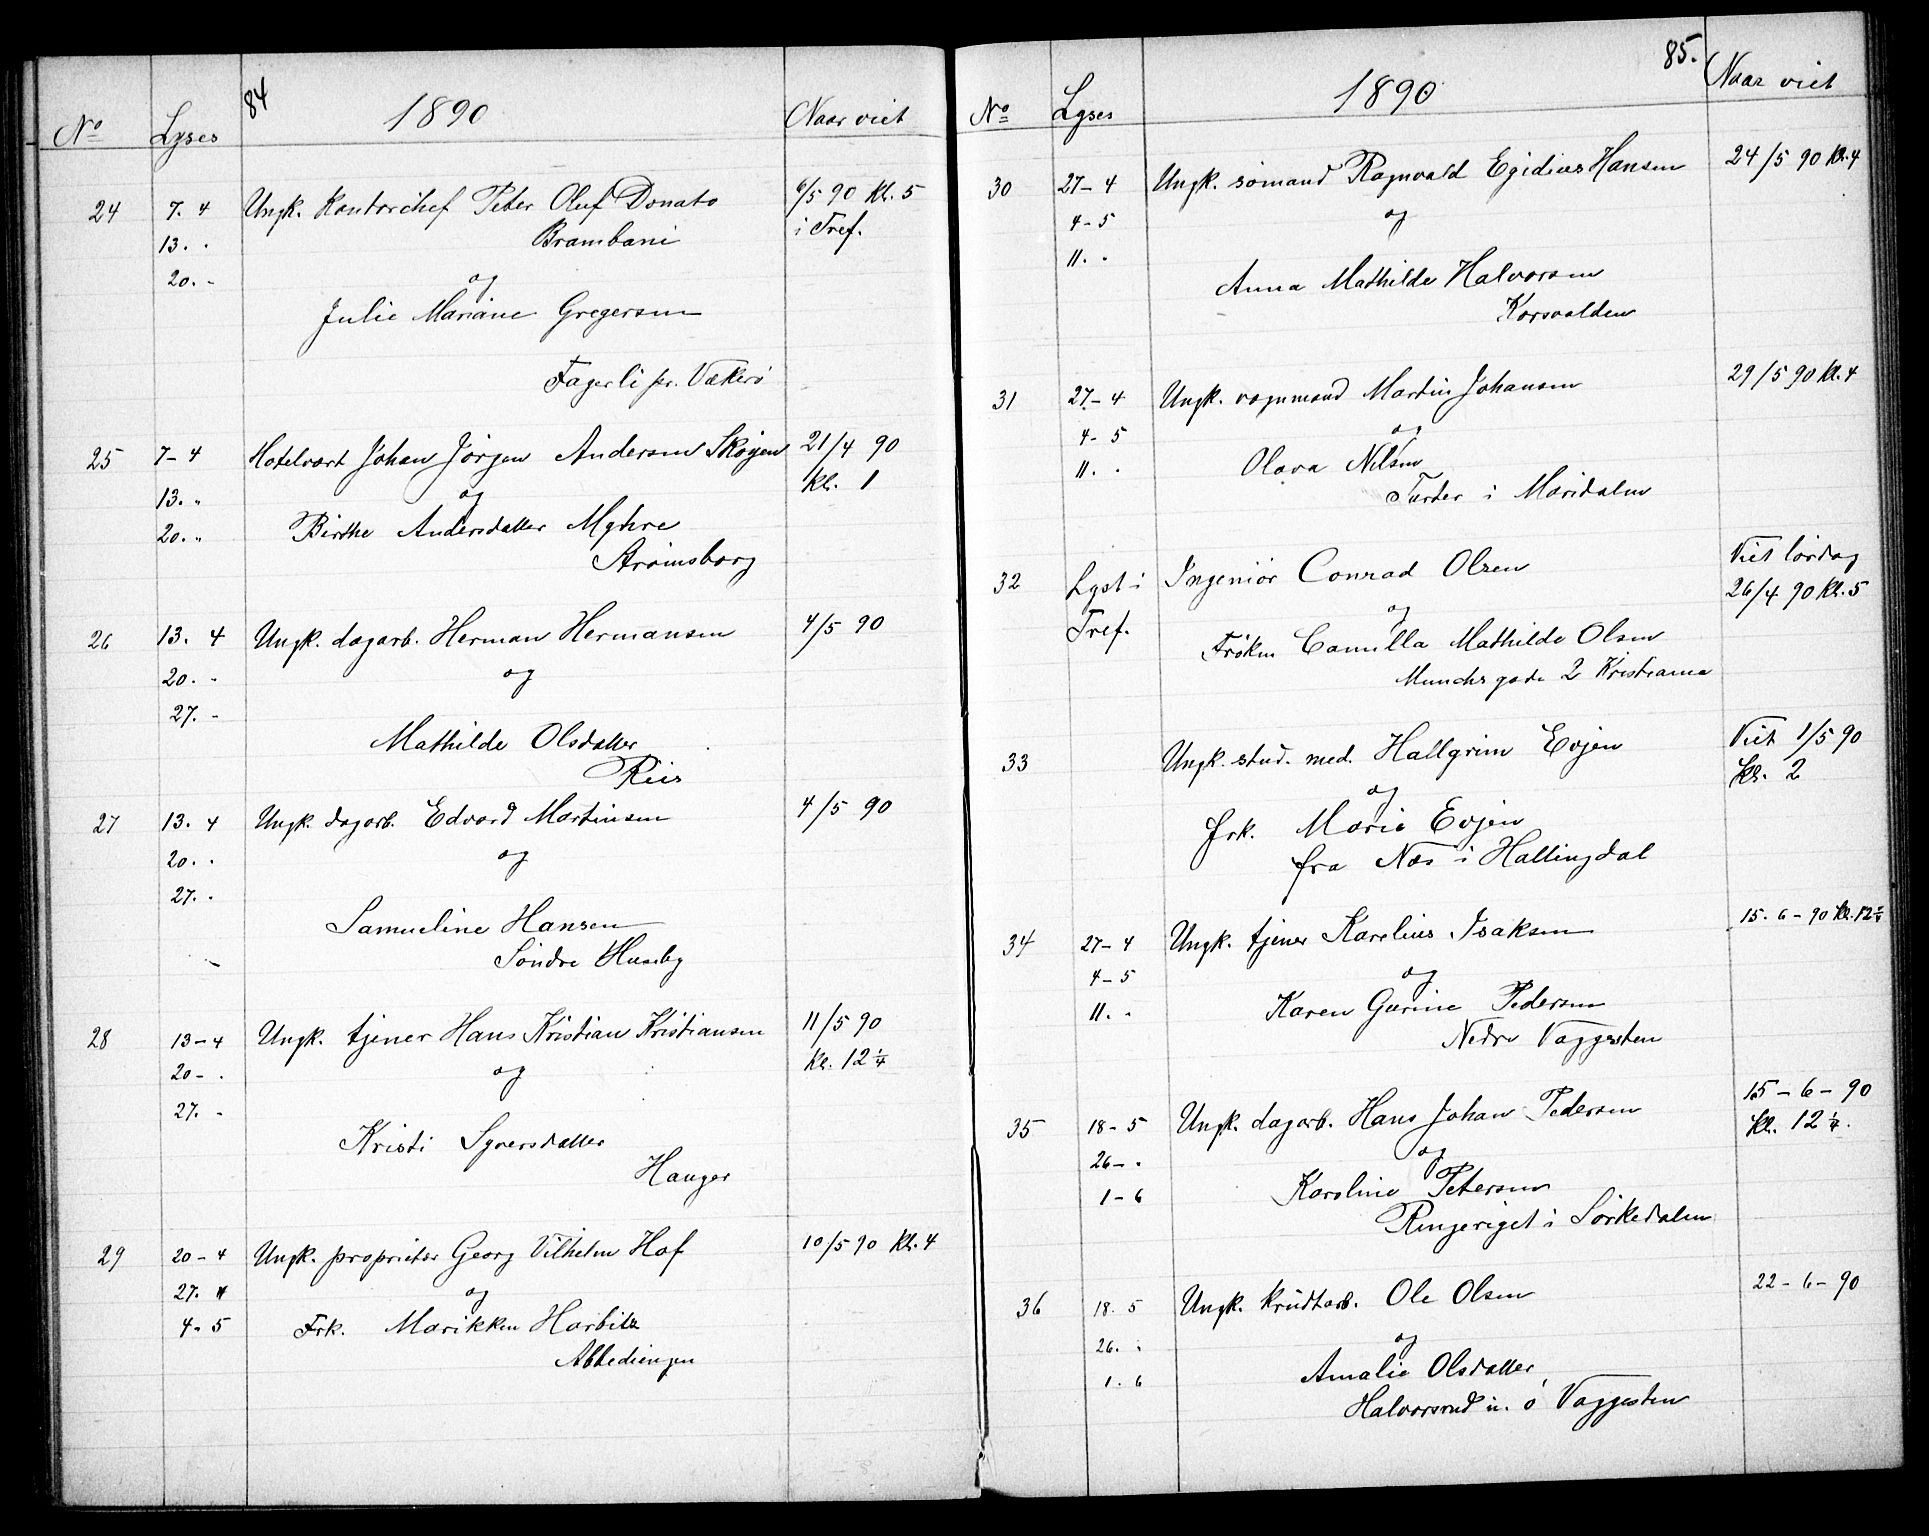 84
1890
No Lyses Naar viet
24 7. 4 Ungk. Kontorchef Peter Oluf Donato 6/5 90 Kl. 5
13. . Brambani i Tref.
20. - og
Julie Mariane Gregersen
Fagerli pr. Vækerö
25 7-4 Hotelvært Johan Jörgen Andersen Sköyen 21/4 90
13. „ og Kl. 1
20. „ Birthe Andersdatter Myhre
Strömsborg
26 13. 4 Ungk. dagarb. Herman Hermansen 4/5 90
20. - og
27. -
Mathilde Olsdatter
Riis
27 13. 4 Ungk. dagarb. Edvard Martinsen 4/5 90
20. . og
27. .
Samueline Hansen
Söndre Huseby
28 13-4 Ungk. tjener Hans Kristian Kristiansen 11/5 90
20- . og Kl. 12 1/4
27. -
Kristi Syversdatter
Hauger
29 20-4 Ungk. proprietær Georg Vilhelm Hof 10/5 90 Kl. 4
27. 4 og
4-5 Frk. Marikken Harbitz
Abbediengen
85.
1890
No Lyses Naar viet
30 27-4 Ungk. sömand Ragnvald Egidius Hansen 24/5 90 Kl. 4
4-5 og
11. .
Anna Mathilde Halvorsen
Korsvolden
31 27-4 Ungk. vognmand Martin Johansen 29/5 90 Kl. 4
4-5 og
11. . Olava Nilsen
Turter i Maridalen
32 Lyst i Ingeniör Conrad Olsen Viet lördag
Tref. og 26/4 90 Kl. 5
Fröken Camilla Mathilde Olsen
Munchs gade 2 Kristiania
33 Ungk. stud. med. Hallgrim Evjen Viet 1/5 90
og Kl. 2
frk. Marie Evjen
fra Næs i Hallingdal
34 27-4 Ungk. tjener Karelius Isaksen 15. 6-90 Kl. 12 1/4
4-5 og
11. . Karen Gurine Pedersen
Nedre Vaggesten
35 18-5 Ungk. dagarb. Hans Johan Pedersen 15-6-90
26- . og Kl. 12 1/4.
1-6 Karoline Petersen
Ringeriget i Sörkedalen
36 18. 5 Ungk. krudtarb. Ole Olsen 22-6-90
26. . og
1. 6 Amalie Olsdatter
Halvorsrud u. ö Vaggesten